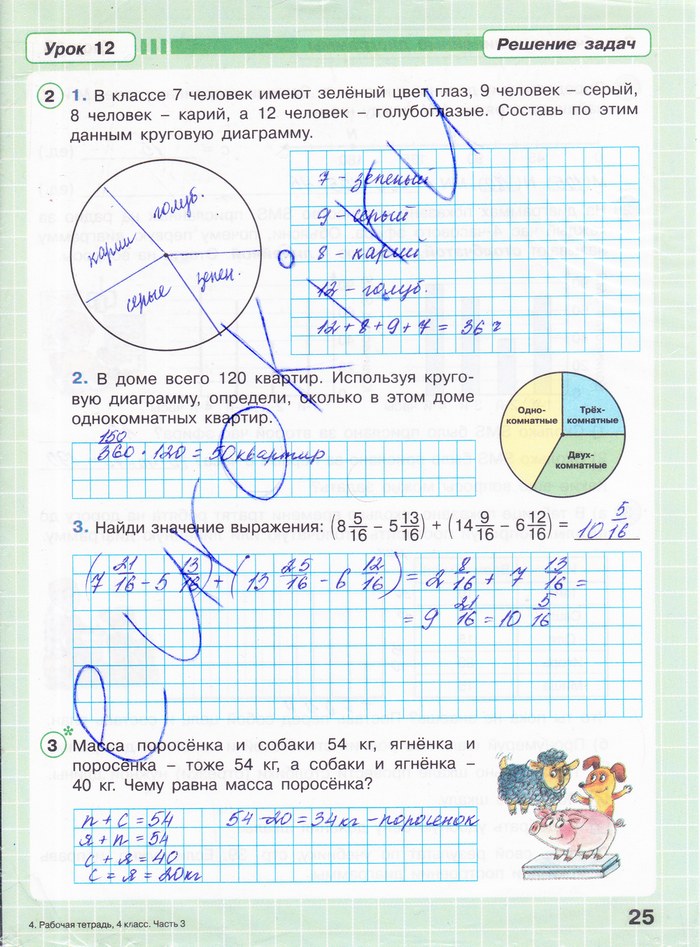 Урок 12
Решение задач
2 1. В классе 7 человек имеют зелёный цвет глаз, 9 человек – серый,
8 человек – карий, а 12 человек – голубоглазые. Составь по этим
данным круговую диаграмму.
голуб.
карии
серые
зелен.
7 – зеленый
9 – серый
8 – карий
12 – голуб.
12 + 8 + 9 + 7 = 36 ч
2. В доме всего 120 квартир. Используя круго-
вую диаграмму, определи, сколько в этом доме
однокомнатных квартир.
Одно-
комнатные
Трёх-
комнатные
Двух-
комнатные
150
360 · 120 = 50 квартир
3. Найди значение выражения: (8 5/16 – 5 13/16) + (14 9/16 – 6 12/16) = 10 5/16
(7 21/16 – 5 13/16) + (13 25/16 – 6 12/16) = 2 8/16 + 7 13/16 =
= 9 21/16 = 10 5/16
3* Масса поросёнка и собаки 54 кг, ягнёнка и
поросёнка – тоже 54 кг, а собаки и ягнёнка –
40 кг. Чему равна масса поросёнка?
п + с = 54
я + п = 54
с + я = 40
с = я = 20кг
54 – 20 = 34 кг – поросенок
4. Рабочая тетрадь, 4 класс. Часть 3
25